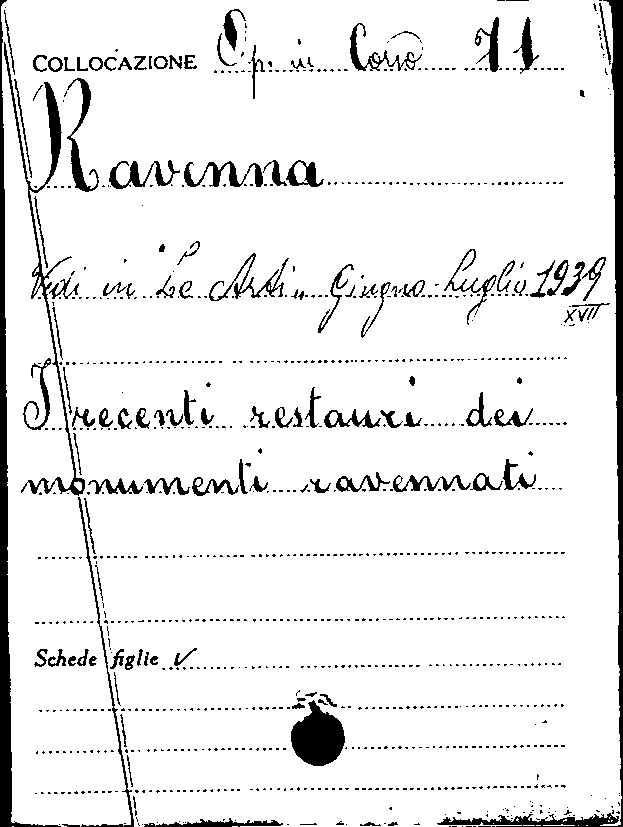 COLLOCAZIONE Op. in Corso 71
Ravenna
Vedi in "Le Arti" Giugno-Luglio 1939
XVII
I recenti restauri dei
monumenti ravennati
Schede figlie √